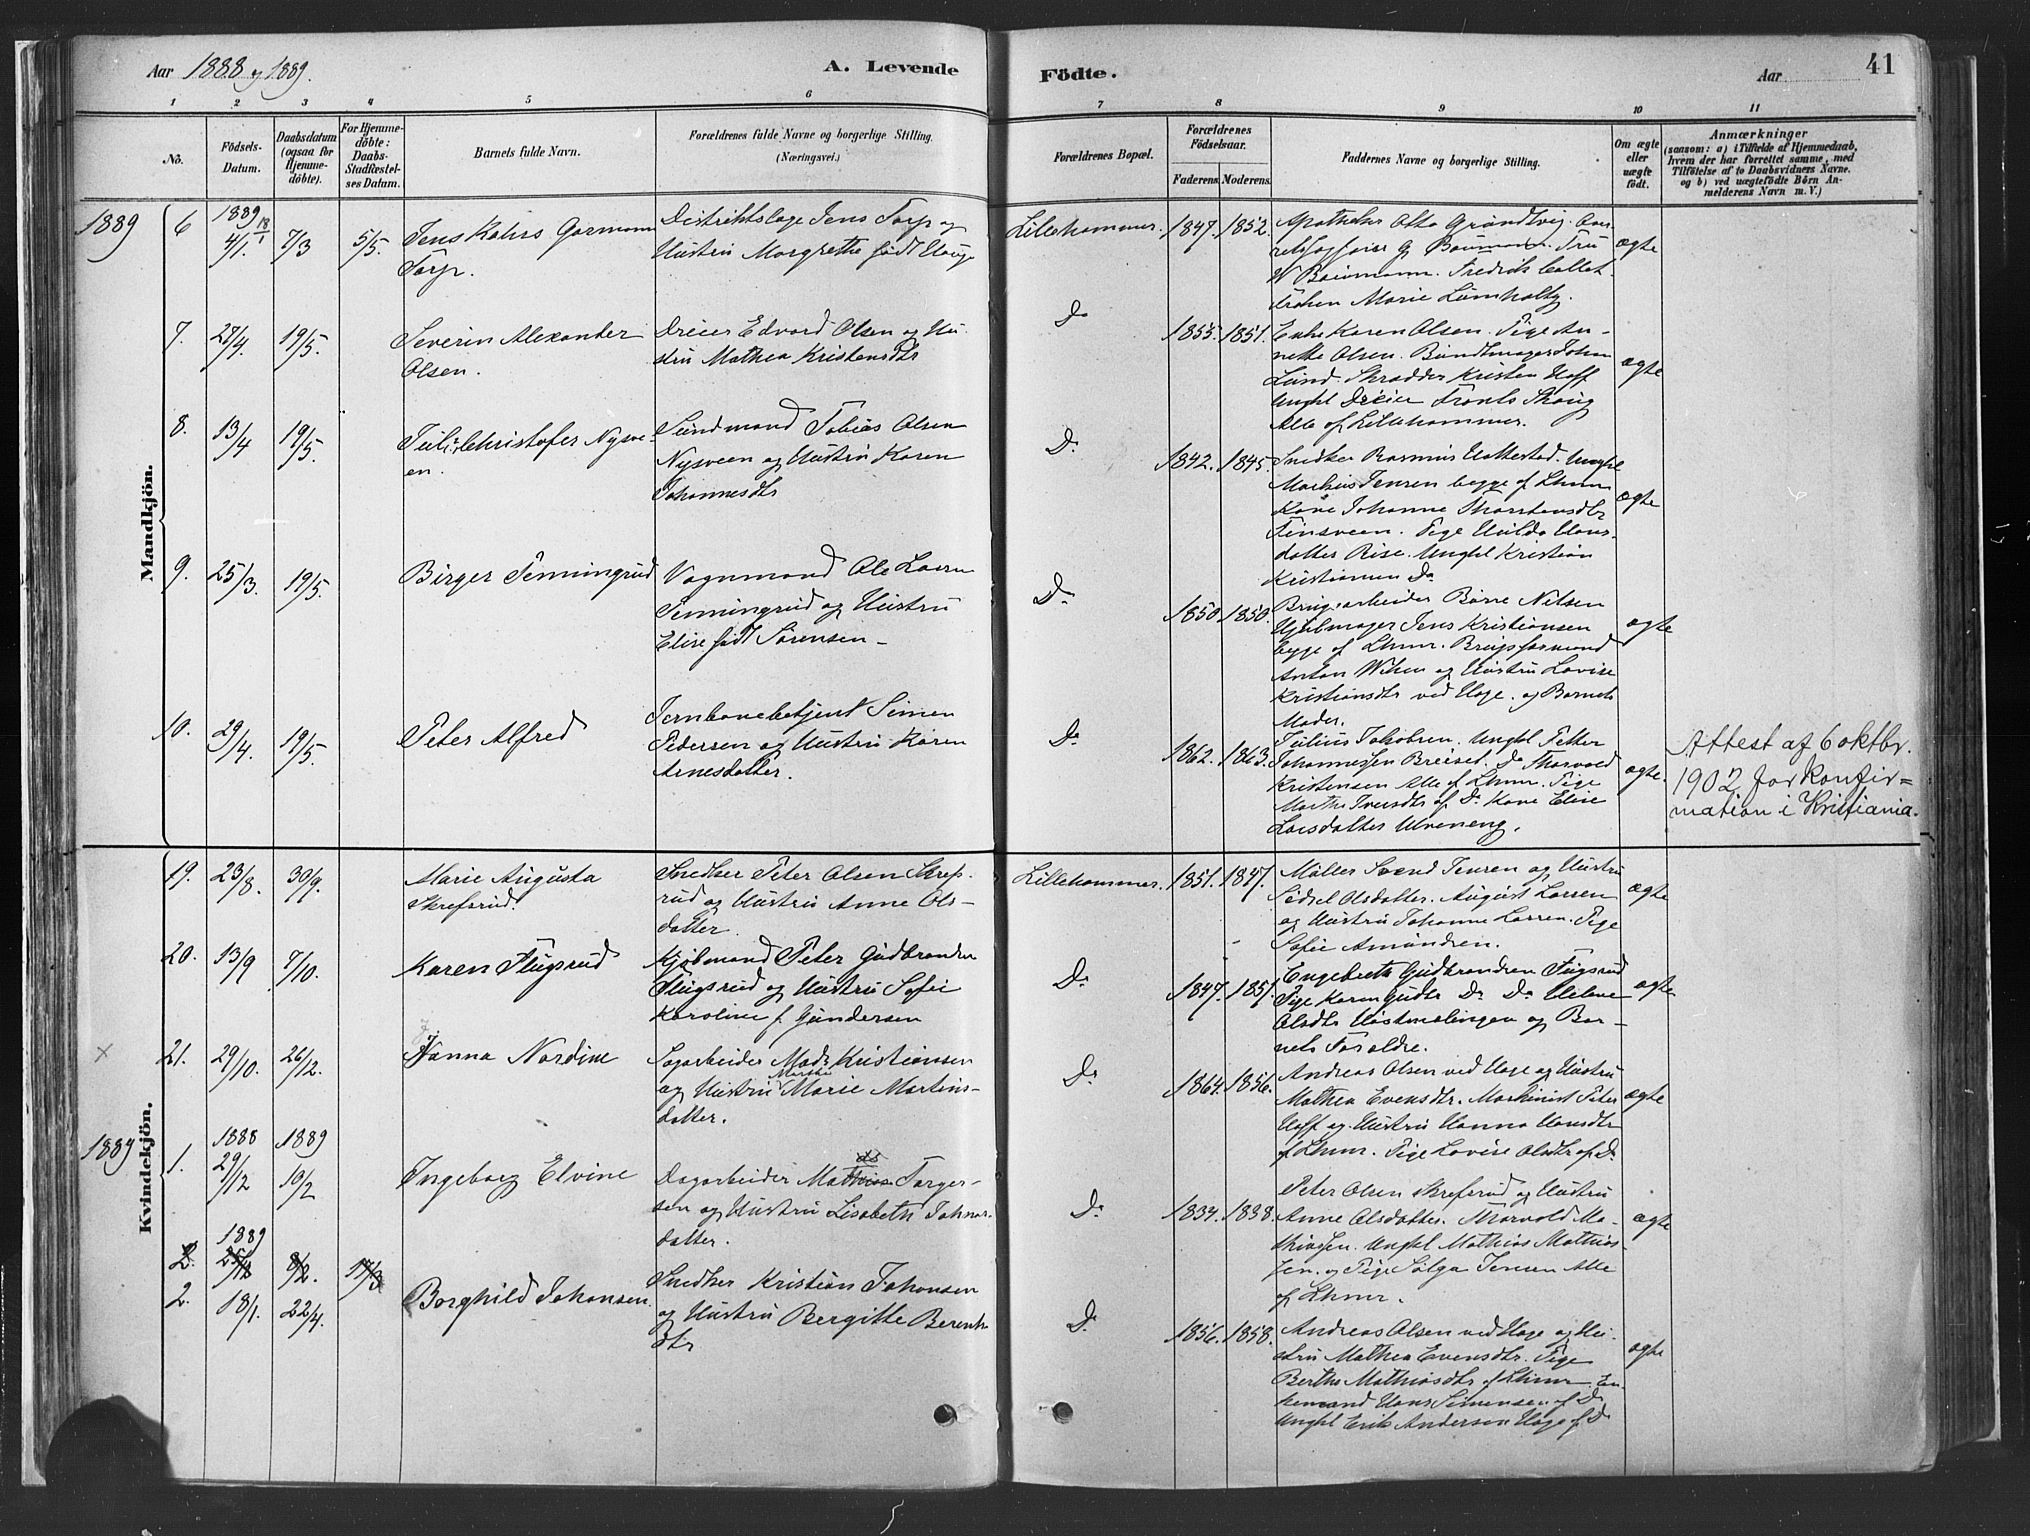 Aar 1888 og 1889.
A. Levende
Födte.
Aar
41
1 2 3 4 5 6 7 8 9 10 11
No.
Födsels-
Datum.
Daabsdatum
(ogsaa for
Hjemme-
döbte).
For Hjemme-
döbte:
Daabs-
Stadfæstel-
ses Datum.
Barnets fulde Navn.
Forældrenes fulde Navne og borgerlige Stilling.
(Næringsvei.)
Forældrenes Bopæl.
Forældrenes
Födselsaar.
Faderens.
Moderens.
Faddernes Navne og borgerlige Stilling.
Om ægte
eller
uægte
födt.
Anmærkninger
(saasom: a) i Tilfælde af Hjemmedaab,
hvem der har forrettet samme, med
Tilföielse af to Daabsvidners Navne,
og b) ved uægtefödte Börn An-
melderens Navn m. V.)
Mandkjön.
1889
6
1889
4/1. 18/1
7/3
5/5.
Jens Garmann
Torp.
Distriktslæge Jens Torp og
Hustru Margrethe født Hauge
Lillehammer.
1847. 1852.
Apotheker Otto Grundtvig.
Fru
W Baumann. Fredrik Collet.
Frøken Marie Lumholtz.
ægte
7.
27/4.
19/5.
Severin Alexander
Olsen.
Dreier Edvard Olsen og Hu-
stru Mathea Kristensdtr
Do
1855. 1851.
Enke Karen Olsen. Pige An-
nette Olsen. Bundtmager Johan
Lund. Skrædder Kristen Hoff
Ungkl Dreier Frants Skoug
Alle af Lillehammer.
ægte
8.
13/4
19/5.
Christofer Nysve-
en.
Sundmand Tobias Olsen
Nysveen og Hustru Karen
Johannesdtr
Do
1842. 1845.
Snedker Rasmus Hattestad. Ungkl
Markus Jensen begge af Lhmr
Kone Johanne Thorstensdtr
Finsveen. Pige Hulda Hans-
datter Rise. Ungkl Kristian
Kristiansen Do
ægte
9.
25/3.
19/5.
Birger Senningrud
Vognmand Ole Larsen
Senningrud og Hustru
Elise født Sørensen
Do
1850. 1850.
Brugsarbeider Børre Nilsen
Hjulmager Jens Kristiansen
begge af Lhmr. Brugsformand
Anton Wilsen og Hustru Lovise
Kristiansdtr ved Hage. og Barnets
Moder.
ægte
10.
29/4.
19/5.
Peter Alfred
Jernbanebetjent Simen
Pedersen og Hustru Karen
Arnesdatter.
Do
1862. 1863.
Julius Jakobsen. Ungkl Petter
Johannessen Breised. Do Thorvald
Kristensen Alle af Lhmr. Pige
Marthe Iversdtr af Do. Kone Eline
Larsdatter Ulveneng.
ægte.
Attest af 6 oktbr.
1902 for konfir=
mation i Kristiania.
Kvindekjön.
19.
23/8.
30/9.
Marie Augusta
Skrefsrud.
Snedker Peter Olsen Skrefs-
rud og Hustru Anne Ols-
datter.
Lillehammer.
1851. 1847.
Møller Svend Jensen og Hustru
Sidsel Olsdatter. August Larsen
og Hustru Johanne Larsen. Pige
Sofie Amundsen.
ægte
20.
13/9
7/10.
Karen Flugsrud
Kjøbmand Peter Gudbrandsen
Flugsrud og Hustru Sofie
Karoline f. Gundersen
Do
1847. 1851.
Engebreth Gudbrandsen Flugsrud
Pige Karen Gudbr Do Do Helene
Olsdtr Høstmælingen og Bar-
nets Forældre.
ægte
x
21.
29/10.
26/12.
Hanna Nordine
Sagarbeider Mads Kristiansen
og Hustru Marthe Marie Martins-
datter.
Do
1864. 1856.
Andreas Olsen ved Hage og Hustru
Mathea Evensdtr. Maskinist Peter
Hoff og Hustru Hanna Hansdtr
af Lhmr. Pige Lovise Olsdtr af Do
ægte
1889
1.
1888
29/12
1889
10/2
Ingeborg Elvine
Dagarbeider Mathias Torger-
sen og Hustru Lisabeth Johans-
datter.
Do
1834. 1838.
Peter Olsen Skrefsrud og Hustru
Anne Olsdatter. Thorvald Ma-
thiassen. Ungkl Mathias Mathias-
sen. og Pige Solga Jensen Alle
af Lhmr.
ægte
1889
2.
25/12
8/2.
17/3
2.
18/1.
22/4.
Borghild Johansen.
Snedker Kristian Johansen
og Hustru Bergitte Berents-
dtr
Do
1856. 1858.
Andreas Olsen ved Hage og Hu-
stru Mathea Evensdtr. Pige
Berthe Mathiasdtr af Lhmr. En-
kemand Hans Simensen af Do
Ungkl Erik Andersen Hage af Do
ægte